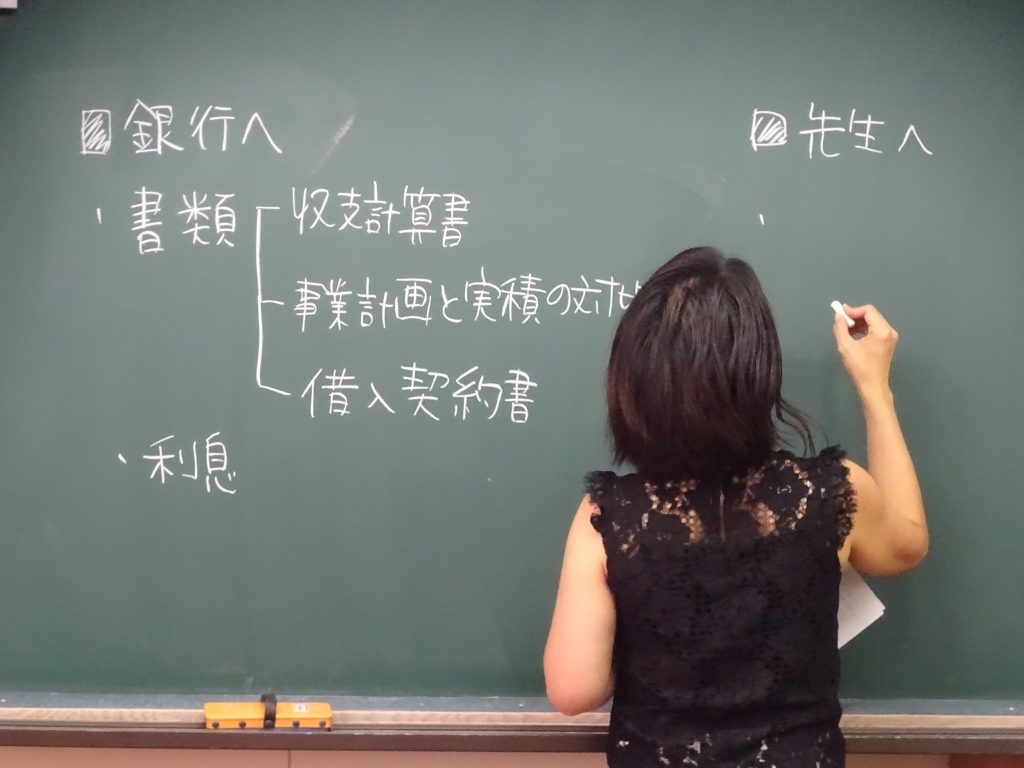 銀行へ
・書類
収支計算書
事業計画と実積の対比
借入契約書
・利息
先生へ
・